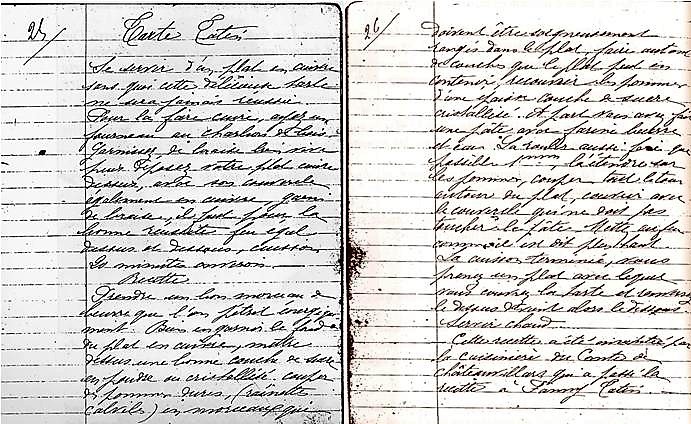 25/
Tarte Tatin
Se servir d'un plat en cuivre
sans quoi cette délicieuse tarte
ne sera jamais réussie
Pour la faire cuire, avoir un
fourneau au charbon de bois
Garnissez de braise bien vive
puis déposez votre plat cuivre
dessus, avec son couvercle
également en cuivre, garni
de braise, il faut pour la
bonne réussite feu égal
dessus et dessous, cuisson
20 minutes environ
Recette
Prendre un bon morceau de
beurre que l'on pétrit
Bien en garnir le fond
du plat en cuivre, mettre
dessus une bonne couche de sucre
en poudre ou cristallisé couper
des pommes dures, (reinette
calvils) en morceaux que
26/
doivent être soigneusement
rangés dans le plat, faire autant
de couches que le plat peut en
contenir, recouvrir les pommes
d'une épaisse couche de sucre
cristallisé. A part vous avez fait
une pâte avec farine beurre
et eau La rouler aussi fine que
possible 1 mm, l'étendre sur
les pommes, couper tout le tour
autour du plat, couvrir avec
le couvercle qui ne doit pas
toucher la pâte Mettre au feu
comme il est dit plus haut
La cuisson terminée, vous
prenez un plat avec lequel
vous couvrez la tarte et renversez
le dessus devient alors le dessous
Servir chaud
Cette recette a été inventée par
la cuisinière du Comte de
Châteauvillars qui a passé la
recette à Fanny Tatin